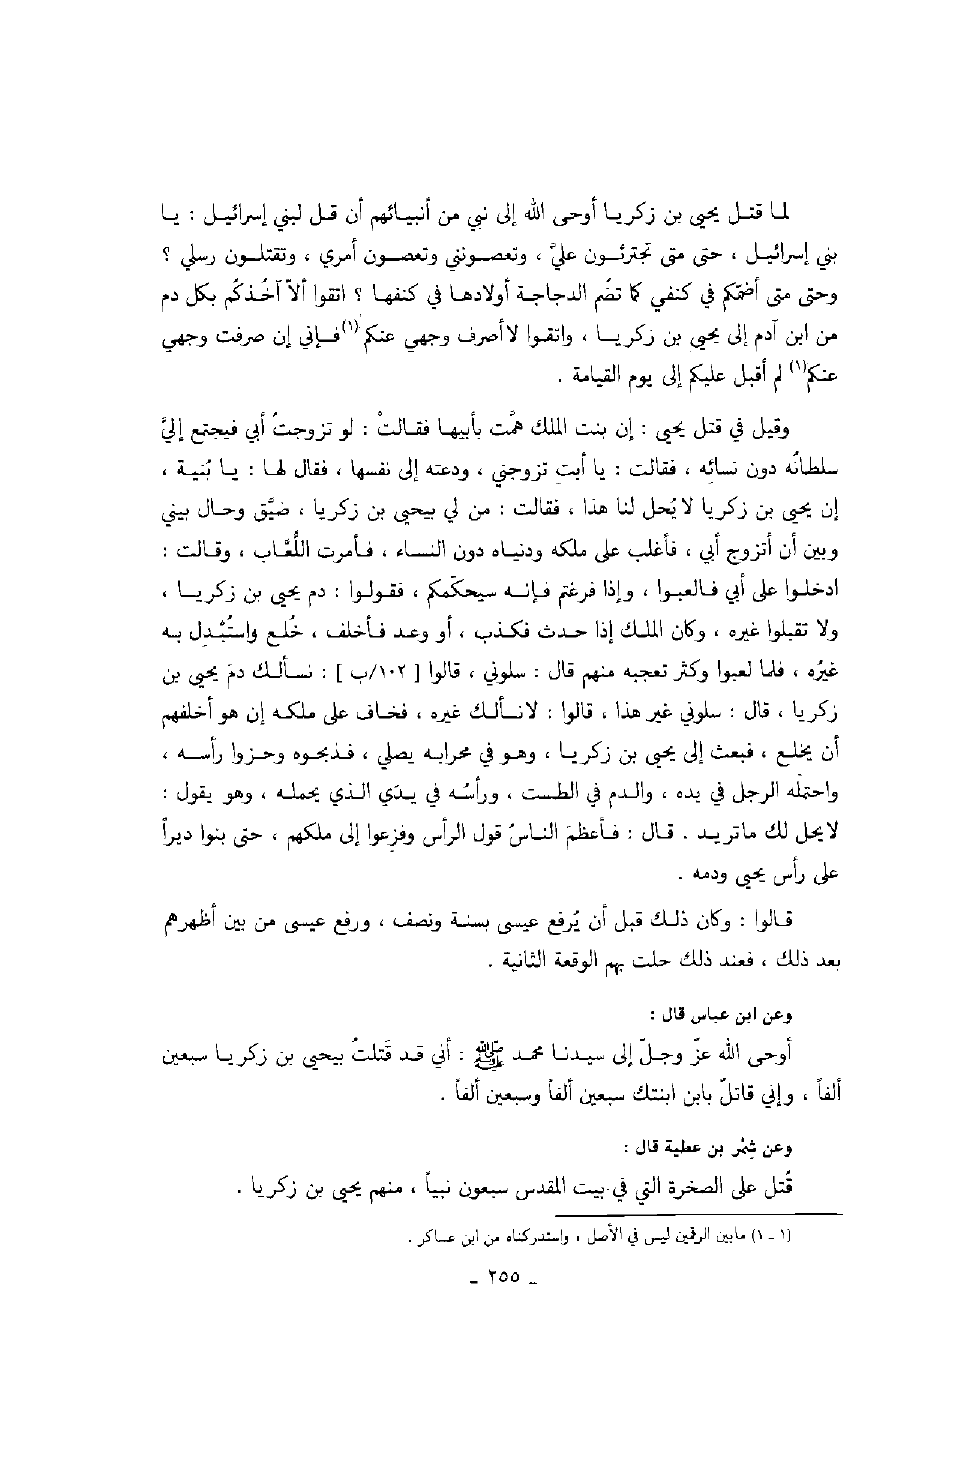 لما قتل يحيى بن زكريا أوحى الله إلى نبي من أنبيائهم أن قل لبني إسرائيل : يا
بني إسرائيل ، حتى متى تجترئون عليَّ ، وتعصونني وتعصون أمري ، وتقتلون رسلي ؟
وحتى متى أضمّكم في كنفي كما تضُم الدجاجة أولادها في كنفها ؟ اتقوا ألاّ آخُذكُم بكل دم
من ابن آدم إلى يحيى بن زكريا ، واتقوا لا أصرف وجهي عنكم (١)فإني إن صرفت وجهي
عنكم(١) لم أقبل عليكم إلى يوم القيامة .
وقيل في قتل يحيى : إن بنت الملك همَّت بأبيها فقالتْ : لو تزوجتُ أبي فيجتمع إليَّ
سلطانُه دون نسائِه ، فقالت : يا أبتِ تزوجني ، ودعته إلى نفسها ، فقال لها : يا بُنية ،
إن يحيى بن زكريا لا يُحل لنا هذا ، فقالت : من لي بيحيى بن زكريا ، ضيَّق وحال بيني
وبين أن أتزوج أبي ، فأغلب على ملكه ودنياه دون النساء ، فأمرت اللُّعَّاب ، وقالت :
ادخلوا على أبي فالعبوا ، وإذا فرغتم فإنه سيحكّمكم ، فقولوا : دم يحيى بن زكريا ،
ولا تقبلوا غيره ، وكان الملك إذا حدث فكذب ، أو وعد فأخلف ، خُلع واستُبْدل به
غيرُه ، فلما لعبوا وكثر تعجبه منهم قال : سلوني ، قالوا [ ١٠٢/ب ] : نسألك دمَ يحيى بن
زكريا ، قال : سلوني غير هذا ، قالوا : لا نسألك غيره ، فخاف على ملكه إن هو أخلفهم
أن يخلع ، فبعث إلى يحيى بن زكريا ، وهو في محرابه يصلي ، فذبحوه وحزوا رأسه ،
واحتمله الرجل في يده ، والدم في الطست ، ورأسُه في يدَي الذي يحمله ، وهو يقول :
لايحل لك ماتريد . قال : فأعظمَ الناسُ قول الرأس وفزعوا إلى ملكهم ، حتى بنوا ديراً
على رأس يحيى ودمه .
قالوا : وكان ذلك قبل أن يُرفع عيسى بسنة ونصف ، ورفع عيسى من بين أظهرهم
بعد ذلك ، فعند ذلك حلت بهم الوقعة الثانية .
وعن ابن عباس قال :
أوحى الله عزّ وجلّ إلى سيدنا محمد ﷺ : أني قد قَتلتُ بيحيى بن زكريا سبعين
ألفاً ، وإني قاتلٌ بابن ابنتك سبعين ألفاً وسبعين ألفاً .
وعن شِمْر بن عطية قال :
قُتل على الصخرة التي في بيت المقدس سبعون نبياً ، منهم يحيى بن زكريا .
(١ - ١) مابين الرقمين ليس في الأصل ، واستدركناه من ابن عساكر .
- ٢٥٥ -